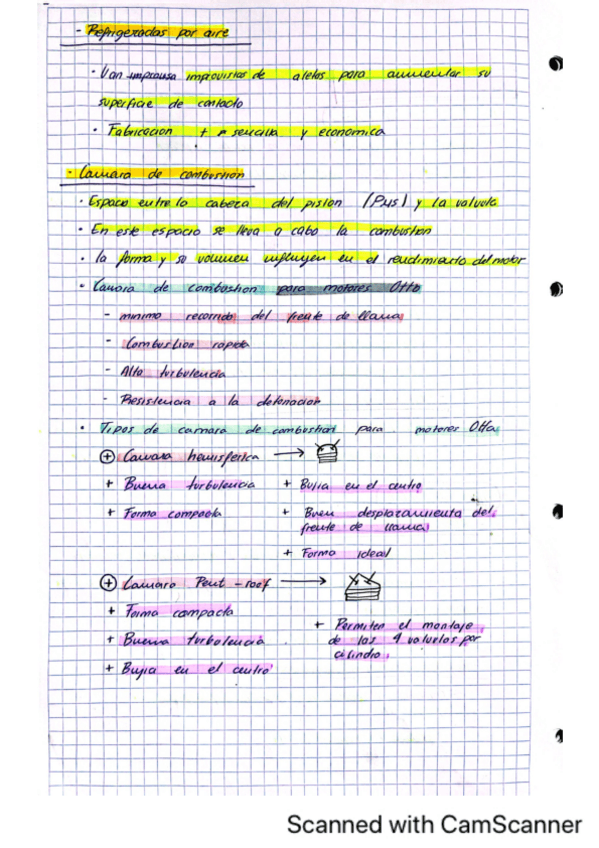 - Refrigeradas por aire
· Van improvistas de aletas para aumentar su
superficie de contacto
· Fabricacion + sencilla y economica
· Camara de combustion
· Espacio entre la cabeza del piston (PMS) y la valvula
· En este espacio se lleva a cabo la combustion
· la forma y su volumen influyen en el rendimiento del motor
· Camara de combustion para motores Otto
- minimo recorrido del frente de llama
- Combustion rapida
- Alta turbulencia
- Resistencia a la detonacion
· Tipos de camara de combustion para motores Otto
⊕ Camara hemisferica →
+ Buena turbulencia + Bujia en el centro
+ Forma compacta + Buen desplazamiento del
frente de llama
+ Forma ideal
⊕ Camara Pent-roof →
+ Forma compacta
+ Permiten el montaje
+ Buena turbulencia de las 4 valvulas por
cilindro.
+ Bujia en el centro
Scanned with CamScanner